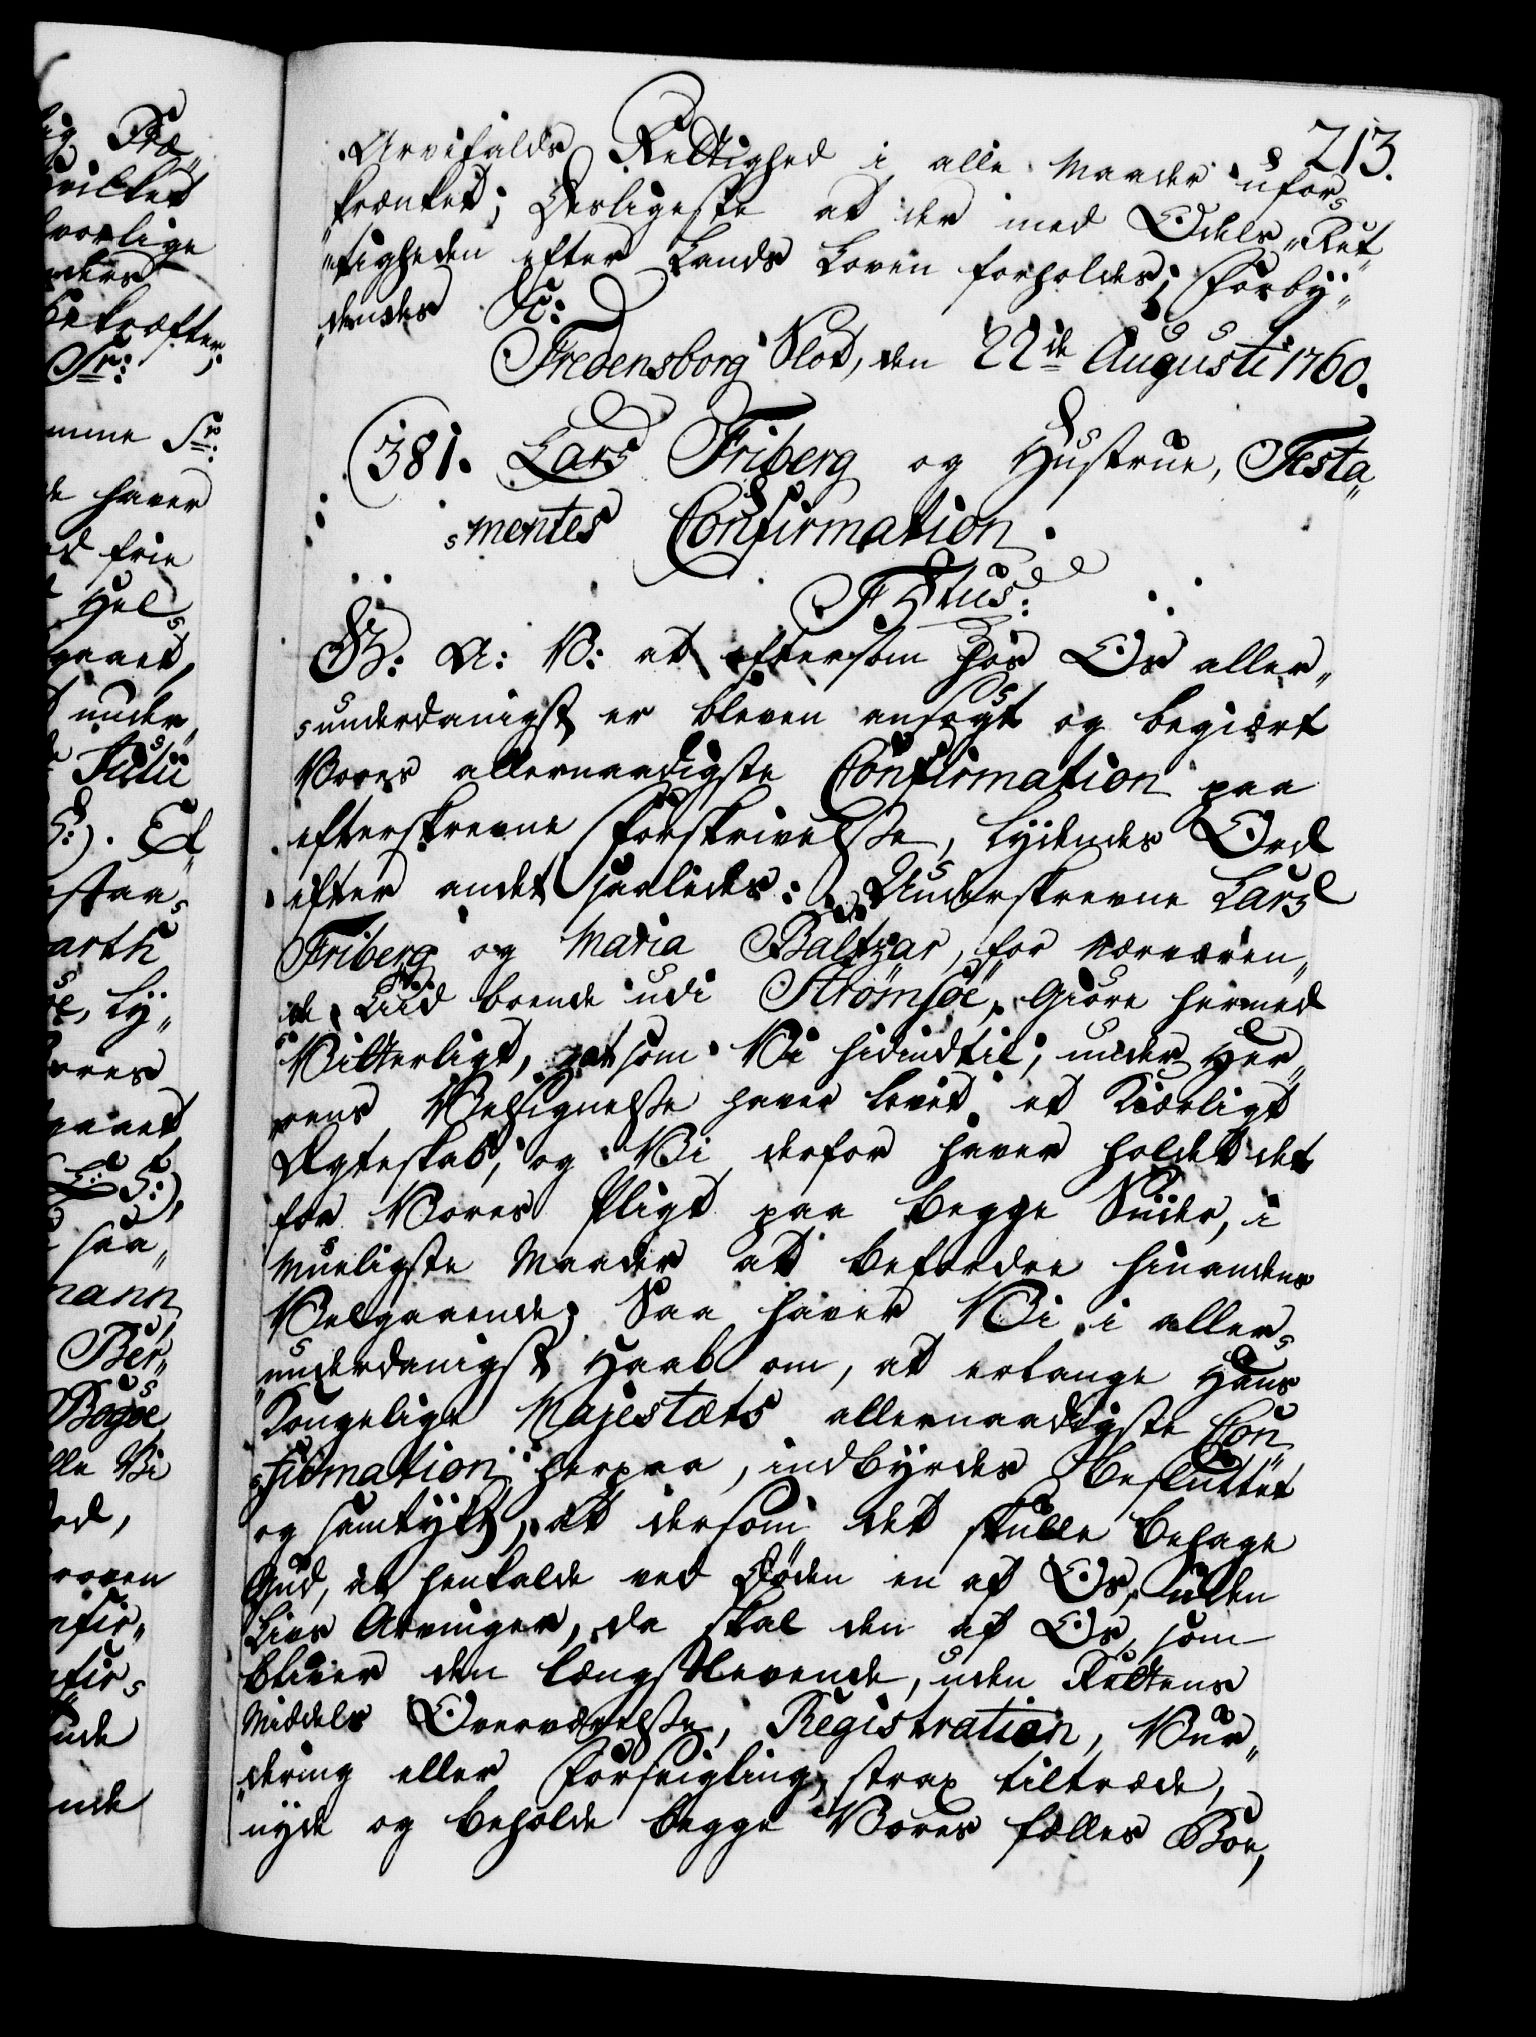 213.
Arvefalds Rettighed i alle Maader ufor-
krænket; Desligeste at der med Odels-Ret-
tigheden efter Lands Loven forholdes; Forby-
dendes &c:
Fredensborg Slot, den 22de Augusti 1760.
381. Lars Friberg og Hustrue, Testa-
mentes Confirmation.
F 5tus:
G: A: V: at eftersom hos Os aller-
underdanigst er bleven ansøgt og begiært
Vores allernaadigste Confirmation paa
efterskrevne Forskrivelse, lydendes Ord
efter andet saaledes: Underskrevne Lars
Friberg og Maria Baltzar, for nærværen-
de Tid boende udi Strømsøe, Giøre hermed
Vitterligt, at som Vi hidindtil, under Her-
rens Velsignelse haver levet et Kierligt
Ægteskab, og Vi derfor haver holdet det
for Vores Pligt paa begge Siider, i
mueligste Maader at befordre hinandens
Velgaaende; Saa haver Vi i aller-
underdanigst Haab om, at erlange Hans
Kongelige Majestæts allernaadigste Con-
firmation herpaa, indbyrdes besluttet
og samtykt, at dersom det skulle behage
Gud, at henkalde ved Døden en af Os, uden
Livs Arvinger, da skal den af Os, som
bliver den længstlevende, uden Rettens
Middels Overværelse, Registration, Vur-
dering eller Forseigling, strax tiltræde,
nyde og beholde begge Vores fælles Boe,